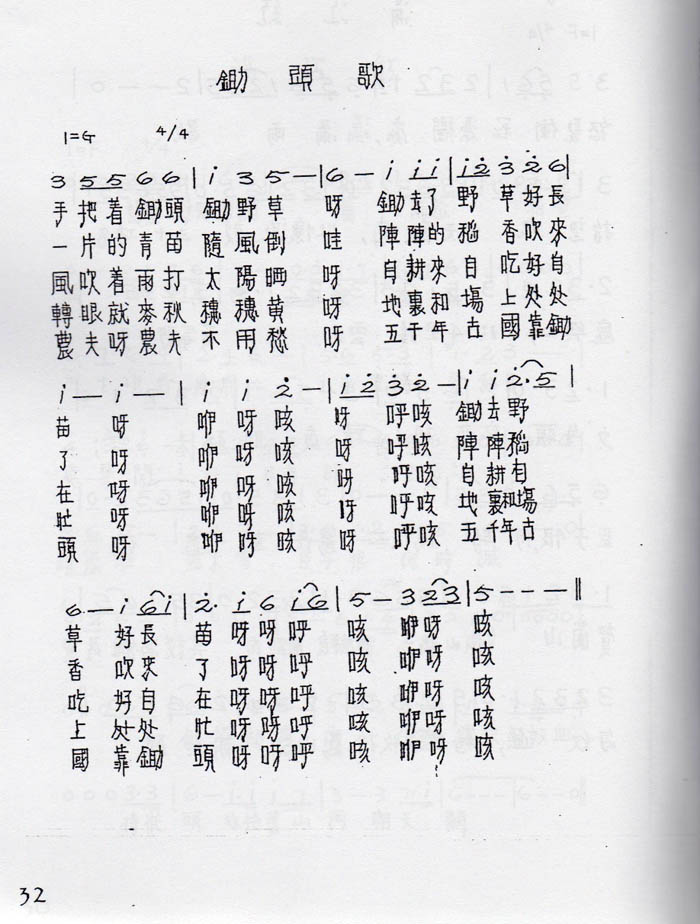 鋤頭歌
1=G 4/4
3 5 5 6 6 | i 3 5 — | 6 — i i i | i 2 3 2 6 |
手把着鋤頭鋤野草呀鋤去了野草好長
一片的青苗隨風倒哇陣陣的稻香吹來
風吹着雨打太陽晒呀自耕來自吃好自
轉眼就麥秋穗穗黃呀地裏和場上处处
農夫呀農夫不用愁呀五千年古國靠鋤
i — i — | i i 2 — | i 2 3 2 — | i i 2·5 |
苗呀咿呀咳呀呼咳鋤去野
了呀咿呀咳呀呼咳陣陣稻
在呀咿呀咳呀呼咳自耕自
壯呀咿呀咳呀呼咳地裏和場
頭呀咿呀咳呀呼咳五千年古
6 — i 6i | 2· i 6 i6 | 5 — 3 23 | 5 — — — ‖
草好長苗呀呀呼咳咿呀咳
香吹來了呀呀呼咳咿呀咳
吃好自在呀呀呼咳咿呀咳
上处处壯呀呀呼咳咿呀咳
國靠鋤頭呀呀呼咳咿呀咳
32